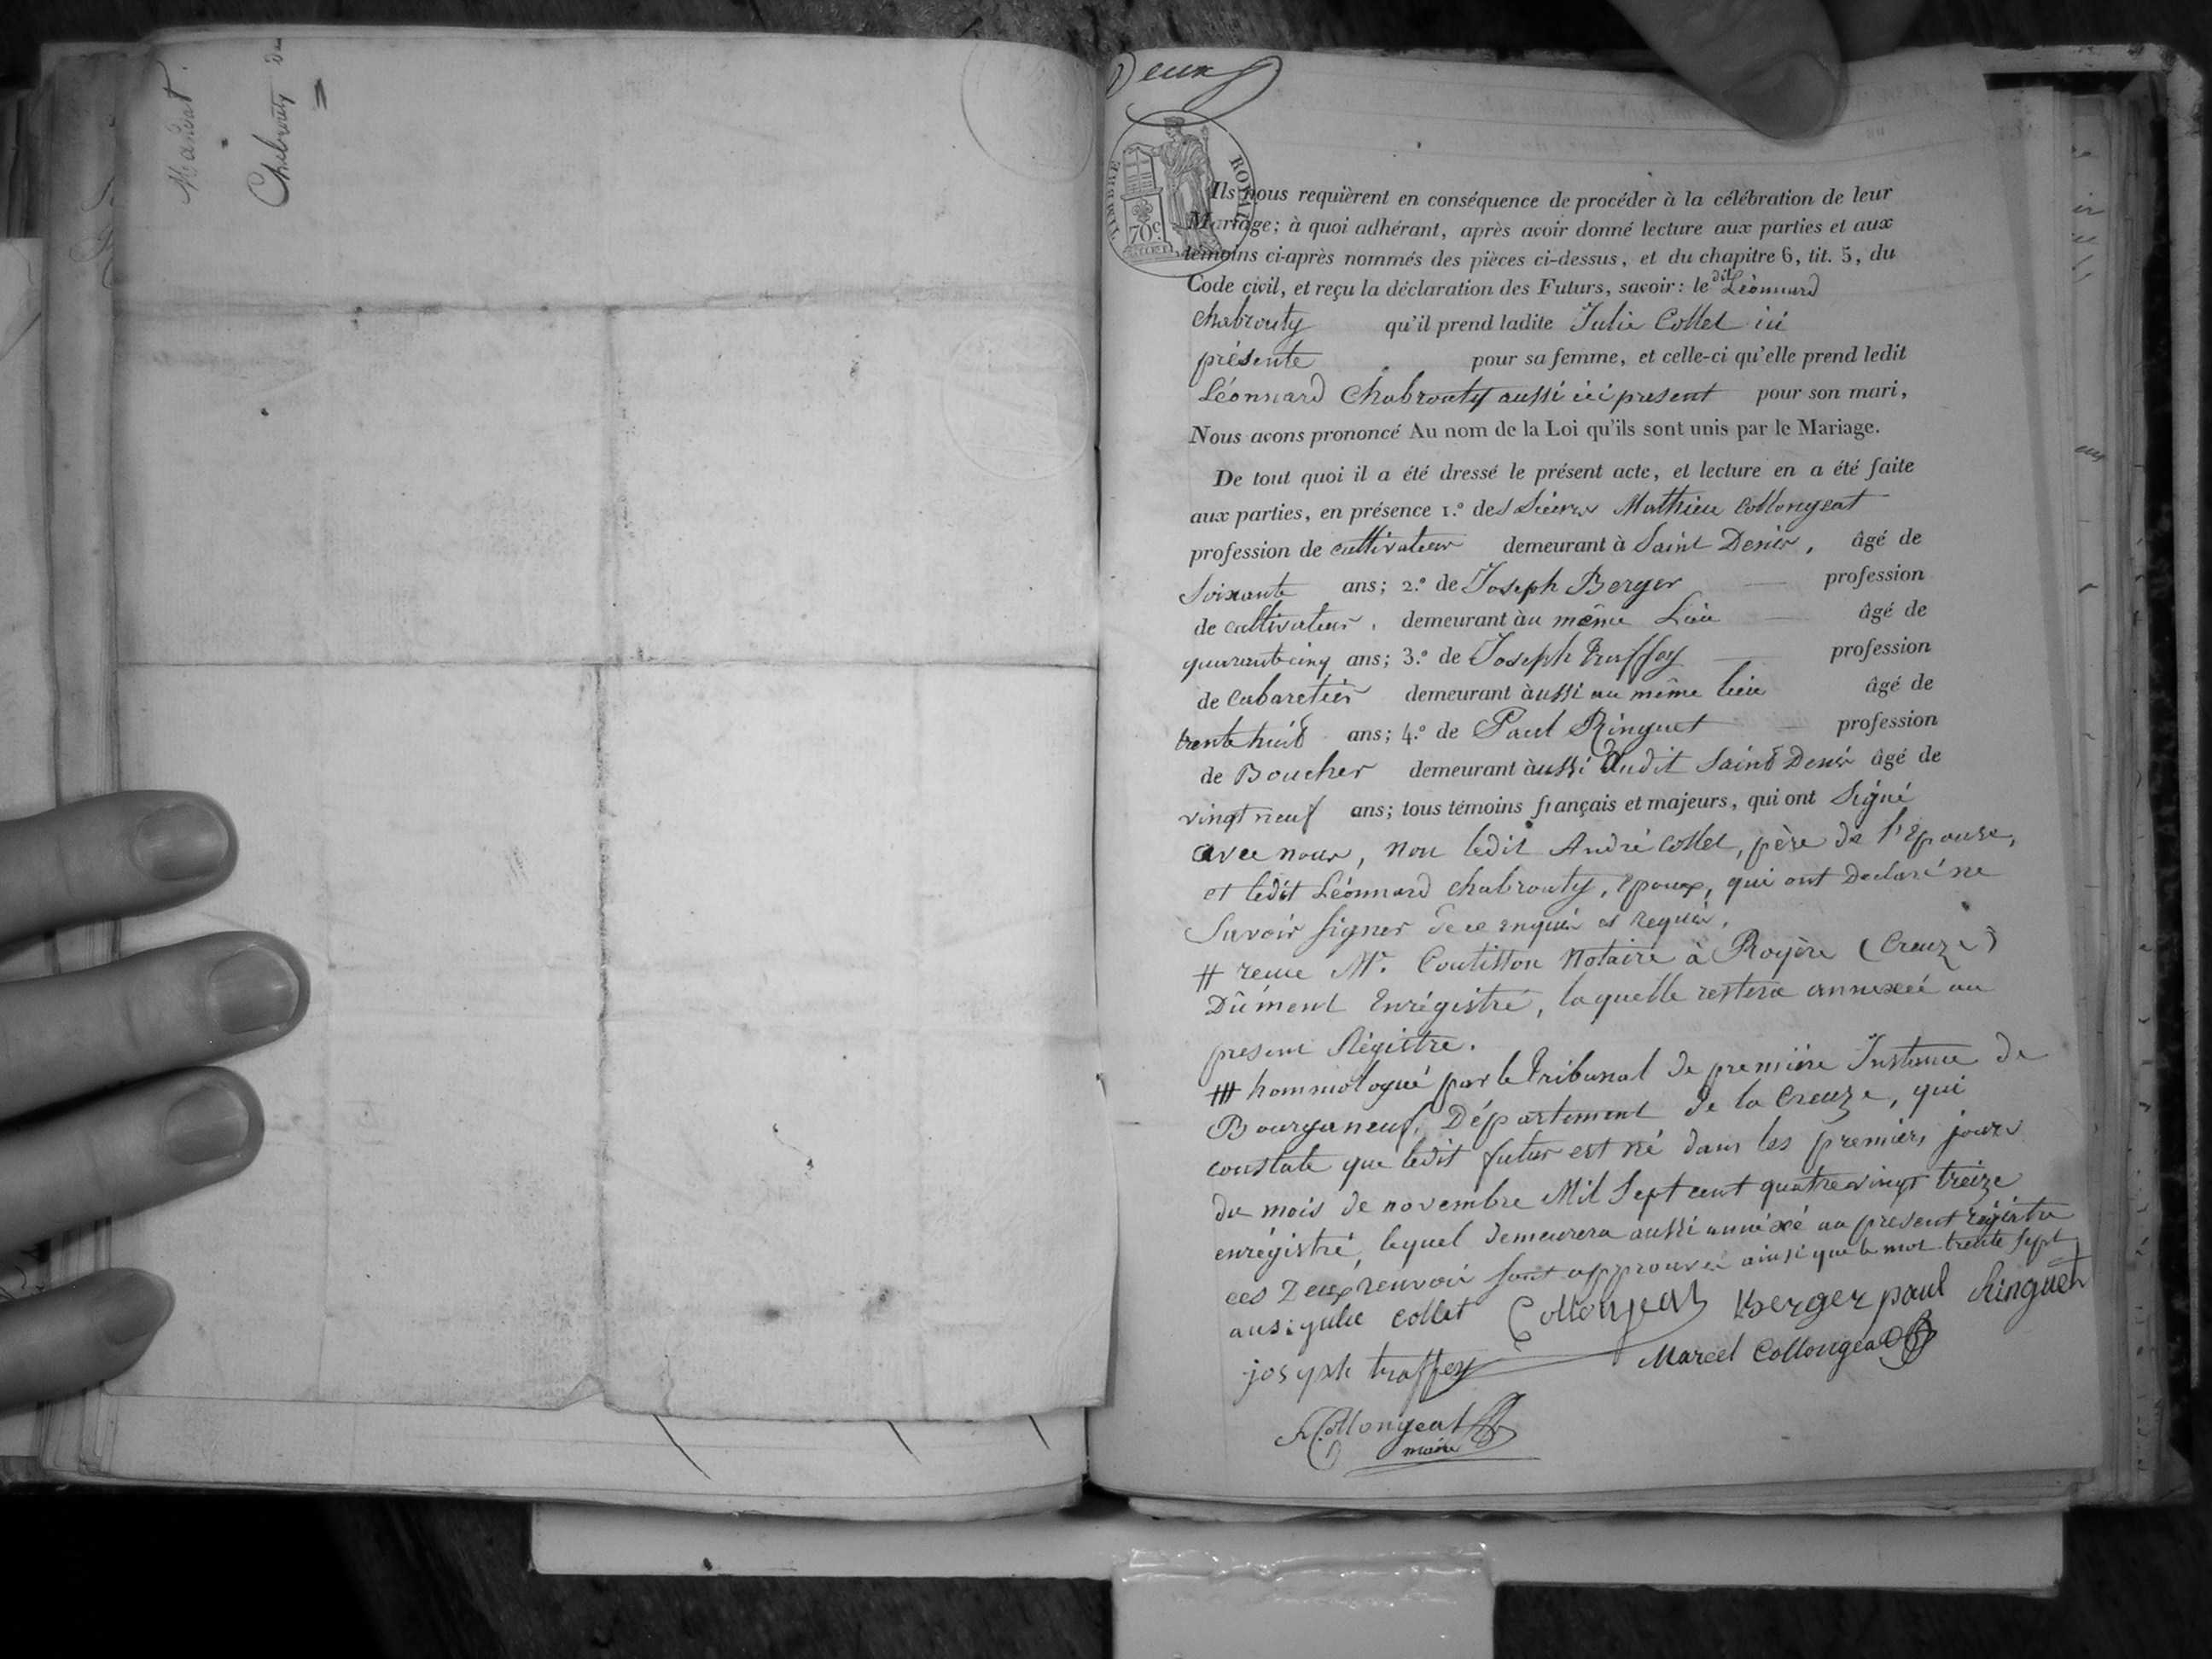 Mandat
Chabrouty
Deux
TIMBRE ROYAL
70c
Ils nous requièrent en conséquence de procéder à la célébration de leur
Mariage; à quoi adhérant, après avoir donné lecture aux parties et aux
témoins ci-après nommés des pièces ci-dessus, et du chapitre 6, tit. 5, du
Code civil, et reçu la déclaration des Futurs, savoir: le dit Léonnard
chabrouty qu'il prend ladite Julie Collet ici
présente pour sa femme, et celle-ci qu'elle prend ledit
Léonnard Chabrouty aussi ici present pour son mari,
Nous avons prononcé Au nom de la Loi qu'ils sont unis par le Mariage.
De tout quoi il a été dressé le présent acte, et lecture en a été faite
aux parties, en présence 1.º des Sieurs Mathieu Collongeat
profession de cultivateur demeurant à Saint Denis, âgé de
Soixante ans; 2.º de Joseph Berger profession
de cultivateur, demeurant au même Lieu âgé de
quarantecinq ans; 3.º de Joseph Truffey profession
de Cabaretier demeurant àussi au même lieu âgé de
trente huit ans; 4.º de Paul Ringuet profession
de Boucher demeurant àussi Audit Saint Denis âgé de
vingt neuf ans; tous témoins français et majeurs, qui ont Signé
avec nous, non ledit André Collet, père de l'Epouse,
et ledit Léonnard chabrouty, Epoux, qui ont Declaré ne
Savoir signer de ce enquis et requis.
# reçue Mr. Coutisson Notaire à Royère (Creuze)
Dûment Enrégistré, laquelle restera annexée au
present Régistre.
# hommologué par le Tribunal de première Instance de
Bourganeuf, Département de la Creuze, qui
constate que ledit futur est né dans les premiers jours
du mois de novembre Mil Sept cent quatrevingt treize
enrégistré, lequel demeurera aussi annéxé au present régistre
ces Deux renvois sont approuvés ainsi que le mot trente sept
ans: julie collet Collongeat Berger paul Ringuet
josyph truffey Marcel Collongeat
Collongeat
maire